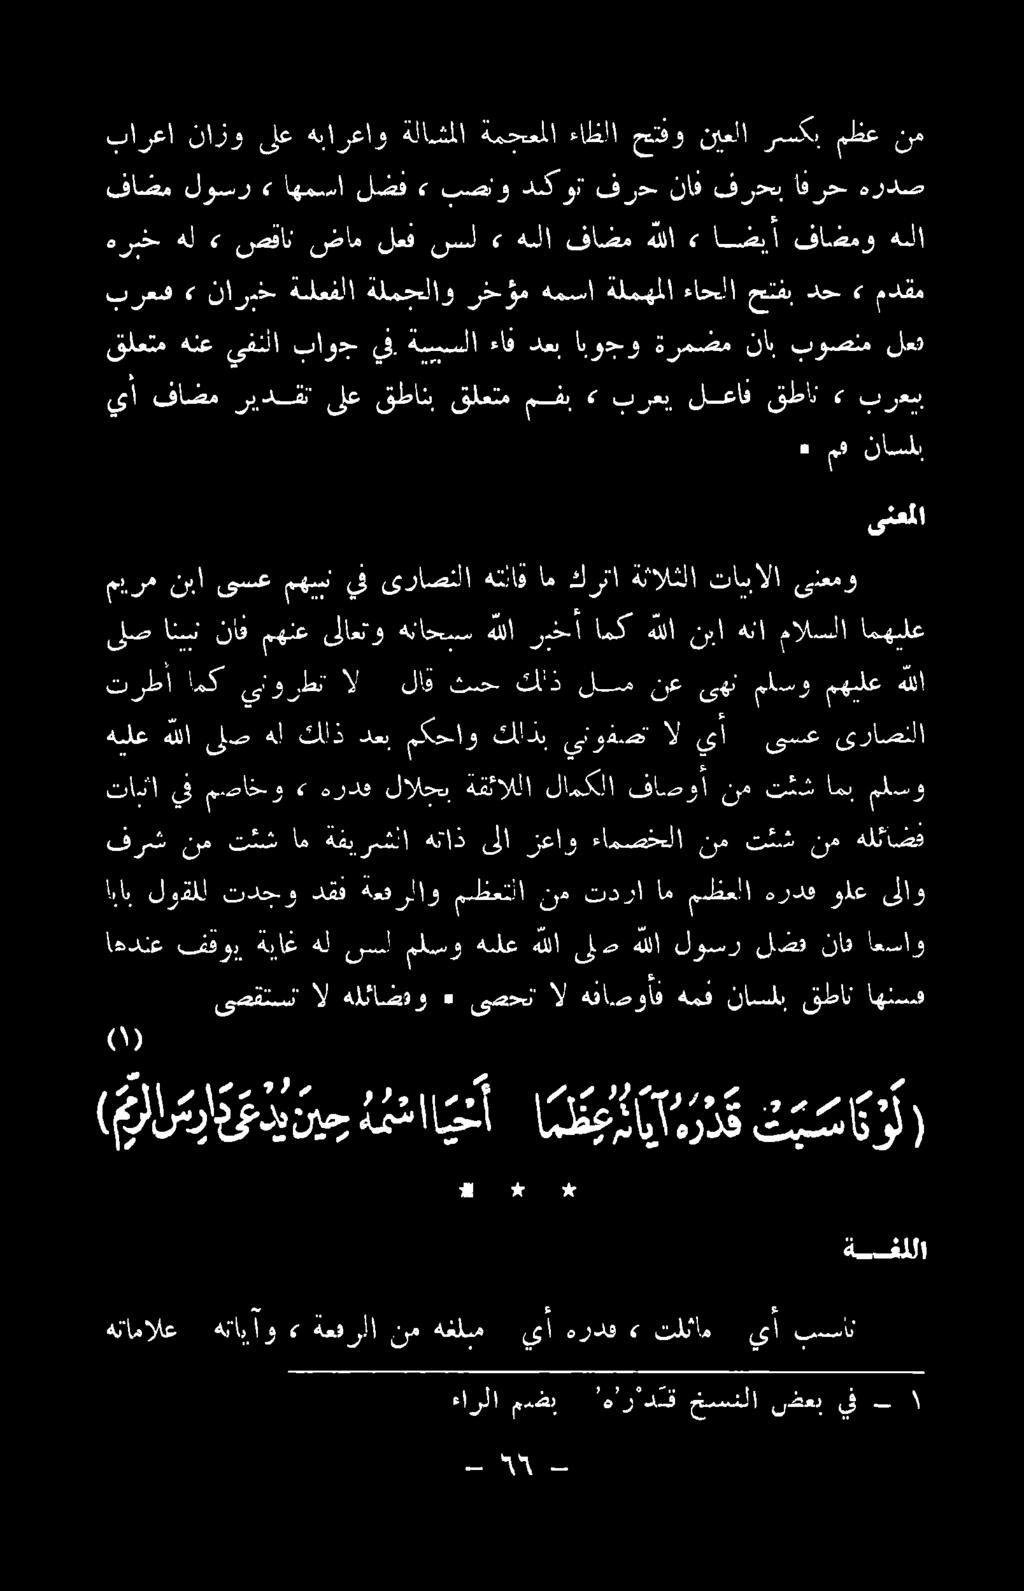 من عظم بكسر العين وفتح الظاء المعجمة المشالة واعرابه على وزان اعراب
صدره حرفا بحرف فان حرف توكيد ونصب ، فضل اسمها ، رسول مضاف
اليه ومضاف أيضا ، الله مضاف اليه ، ليس فعل ماض ناقص ، له خبره
مقدم ، حد بفتح الحاء المهملة اسمه مؤخر والجملة الفعلية خبران ، فيعرب
فعل منصوب بان مضمرة وجوبا بعد فاء السببية في جواب النفي عنه متعلق
بيعرب ، ناطق فاعل يعرب ، بفم متعلق بناطق على تقدير مضاف أي
بلسان فم .
المعنى
ومعنى الابيات الثلاثة اترك ما قالته النصارى في نبيهم عيسى ابن مريم
عليهما السلام انه ابن الله كما أخبر الله سبحانه وتعالى عنهم فان نبينا صلى
الله عليهم وسلم نهى عن مثل ذلك حيث قال لا تطروني كما أطرت
النصارى عيسى أي لا تصفوني بذلك واحكم بعد ذلك له صلى الله عليه
وسلم بما شئت من أوصاف الكمال اللائقة بجلال قدره ، وخاصم في اثبات
فضائله من شئت من الخصماء واعز الى ذاته الشريفة ما شئت من شرف
والى علو قدره العظيم ما اردت من التعظيم والرفعة فقد وجدت للقول بابا
واسعا فان فضل رسول الله صلى الله عليه وسلم ليس له غاية يوقف عندها
فيبينها ناطق بلسان فمه فأوصافه لا تحصى . وفضائله لا تستقصى
(١)
(لَوْ نَاسَبَتْ قَدْرَهُ آيَاتُهُ عِظَمًا أَحْيَا اسْمُهُ حِينَ يُدْعَى دَارِسَ الرِّمَمِ)
* * *
اللغــة
ناسب أي ماثلت ، قدره أي مبلغه من الرفعة ، وآياته علاماته
١ – في بعض النسخ قَدْرُهُ بضم الراء
– ٦٦ –